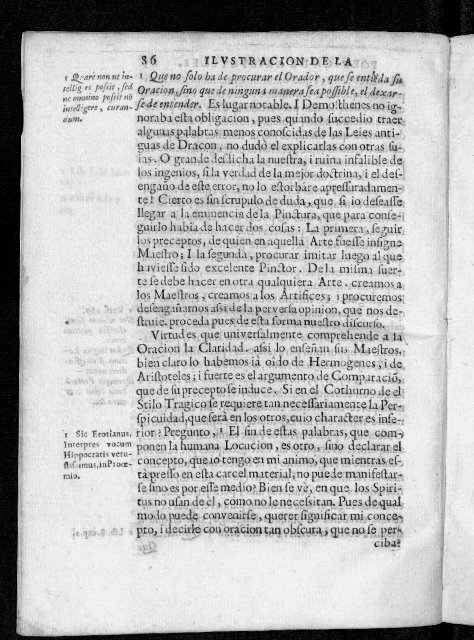 86 ILVSTRACION DE LA
1 Quare non ut in-
tellig re possit, sed
ne omnino possit nō
intelligere, curan-
dum.
1 Que no solo ha de procurar el Orador, que se entiēda su
Oracion, sino que de ninguna manera sea possible, el dexar-
se de entender. Es lugar notable. I Demosthenes no ig-
noraba esta obligacion, pues quando succedio traer
algunas palabras menos conoscidas de las Leies anti-
guas de Dracon, no dudò el explicarlas con otras su-
ias. O grande desdicha la nuestra, i ruina infalible de
los ingenios, si la verdad de la mejor doctrina, i el des-
engaño de este error, no lo estorbàre apressuradamen-
te! Cierto es sin scrupulo de duda, que si io deseasse
llegar a la eminencia de la Pinctura, que para conse-
guirlo habia de hacer dos cosas: La primera, seguir
los preceptos, de quien en aquella Arte fuesse insigne
Maestro; I la segunda, procurar imitar luego al que
huviesse sido excelente Pinctor. De la misma suer-
te se debe hacer en otra qualquiera Arte. creamos a
los Maestros, creamos a los Artifices; i procuremos
desengañarnos assi de la perversa opinion, que nos de-
struie. proceda pues de esta forma nuestro discurso.
Virtudes que universalmente comprehende a la
Oracion la Claridad. assi lo enseñan sus Maestros,
bien claro lo habemos ià oido de Hermogenes, i de
Aristoteles; i fuerte es el argumento de Comparaciō,
que de su precepto se induce. Si en el Cothurno de el
Stilo Tragico se requiere tan necessariamente la Per-
spicuidad, que serà en los otros, cuio character es infe-
rior? Pregunto, 1 El fin de estas palabras, que com-
ponen la humana Locucion, es otro, sino declarar el
concepto, que io tengo en mi animo, que mientras es-
tà presso en esta carcel material, no puede manifestar-
se sino es por esse medio? Bien se vè, en que los Spiri-
tus no usan de èl, como no le necessitan. Pues de qual
modo puede convenirse, querer significar mi conce-
pto, i decirle con oracion tan obscura, que no se per-
ciba?
1 Sic Erotianus,
Interpres vocum
Hippocratis vetu-
stissimus, in Prooe-
mio.